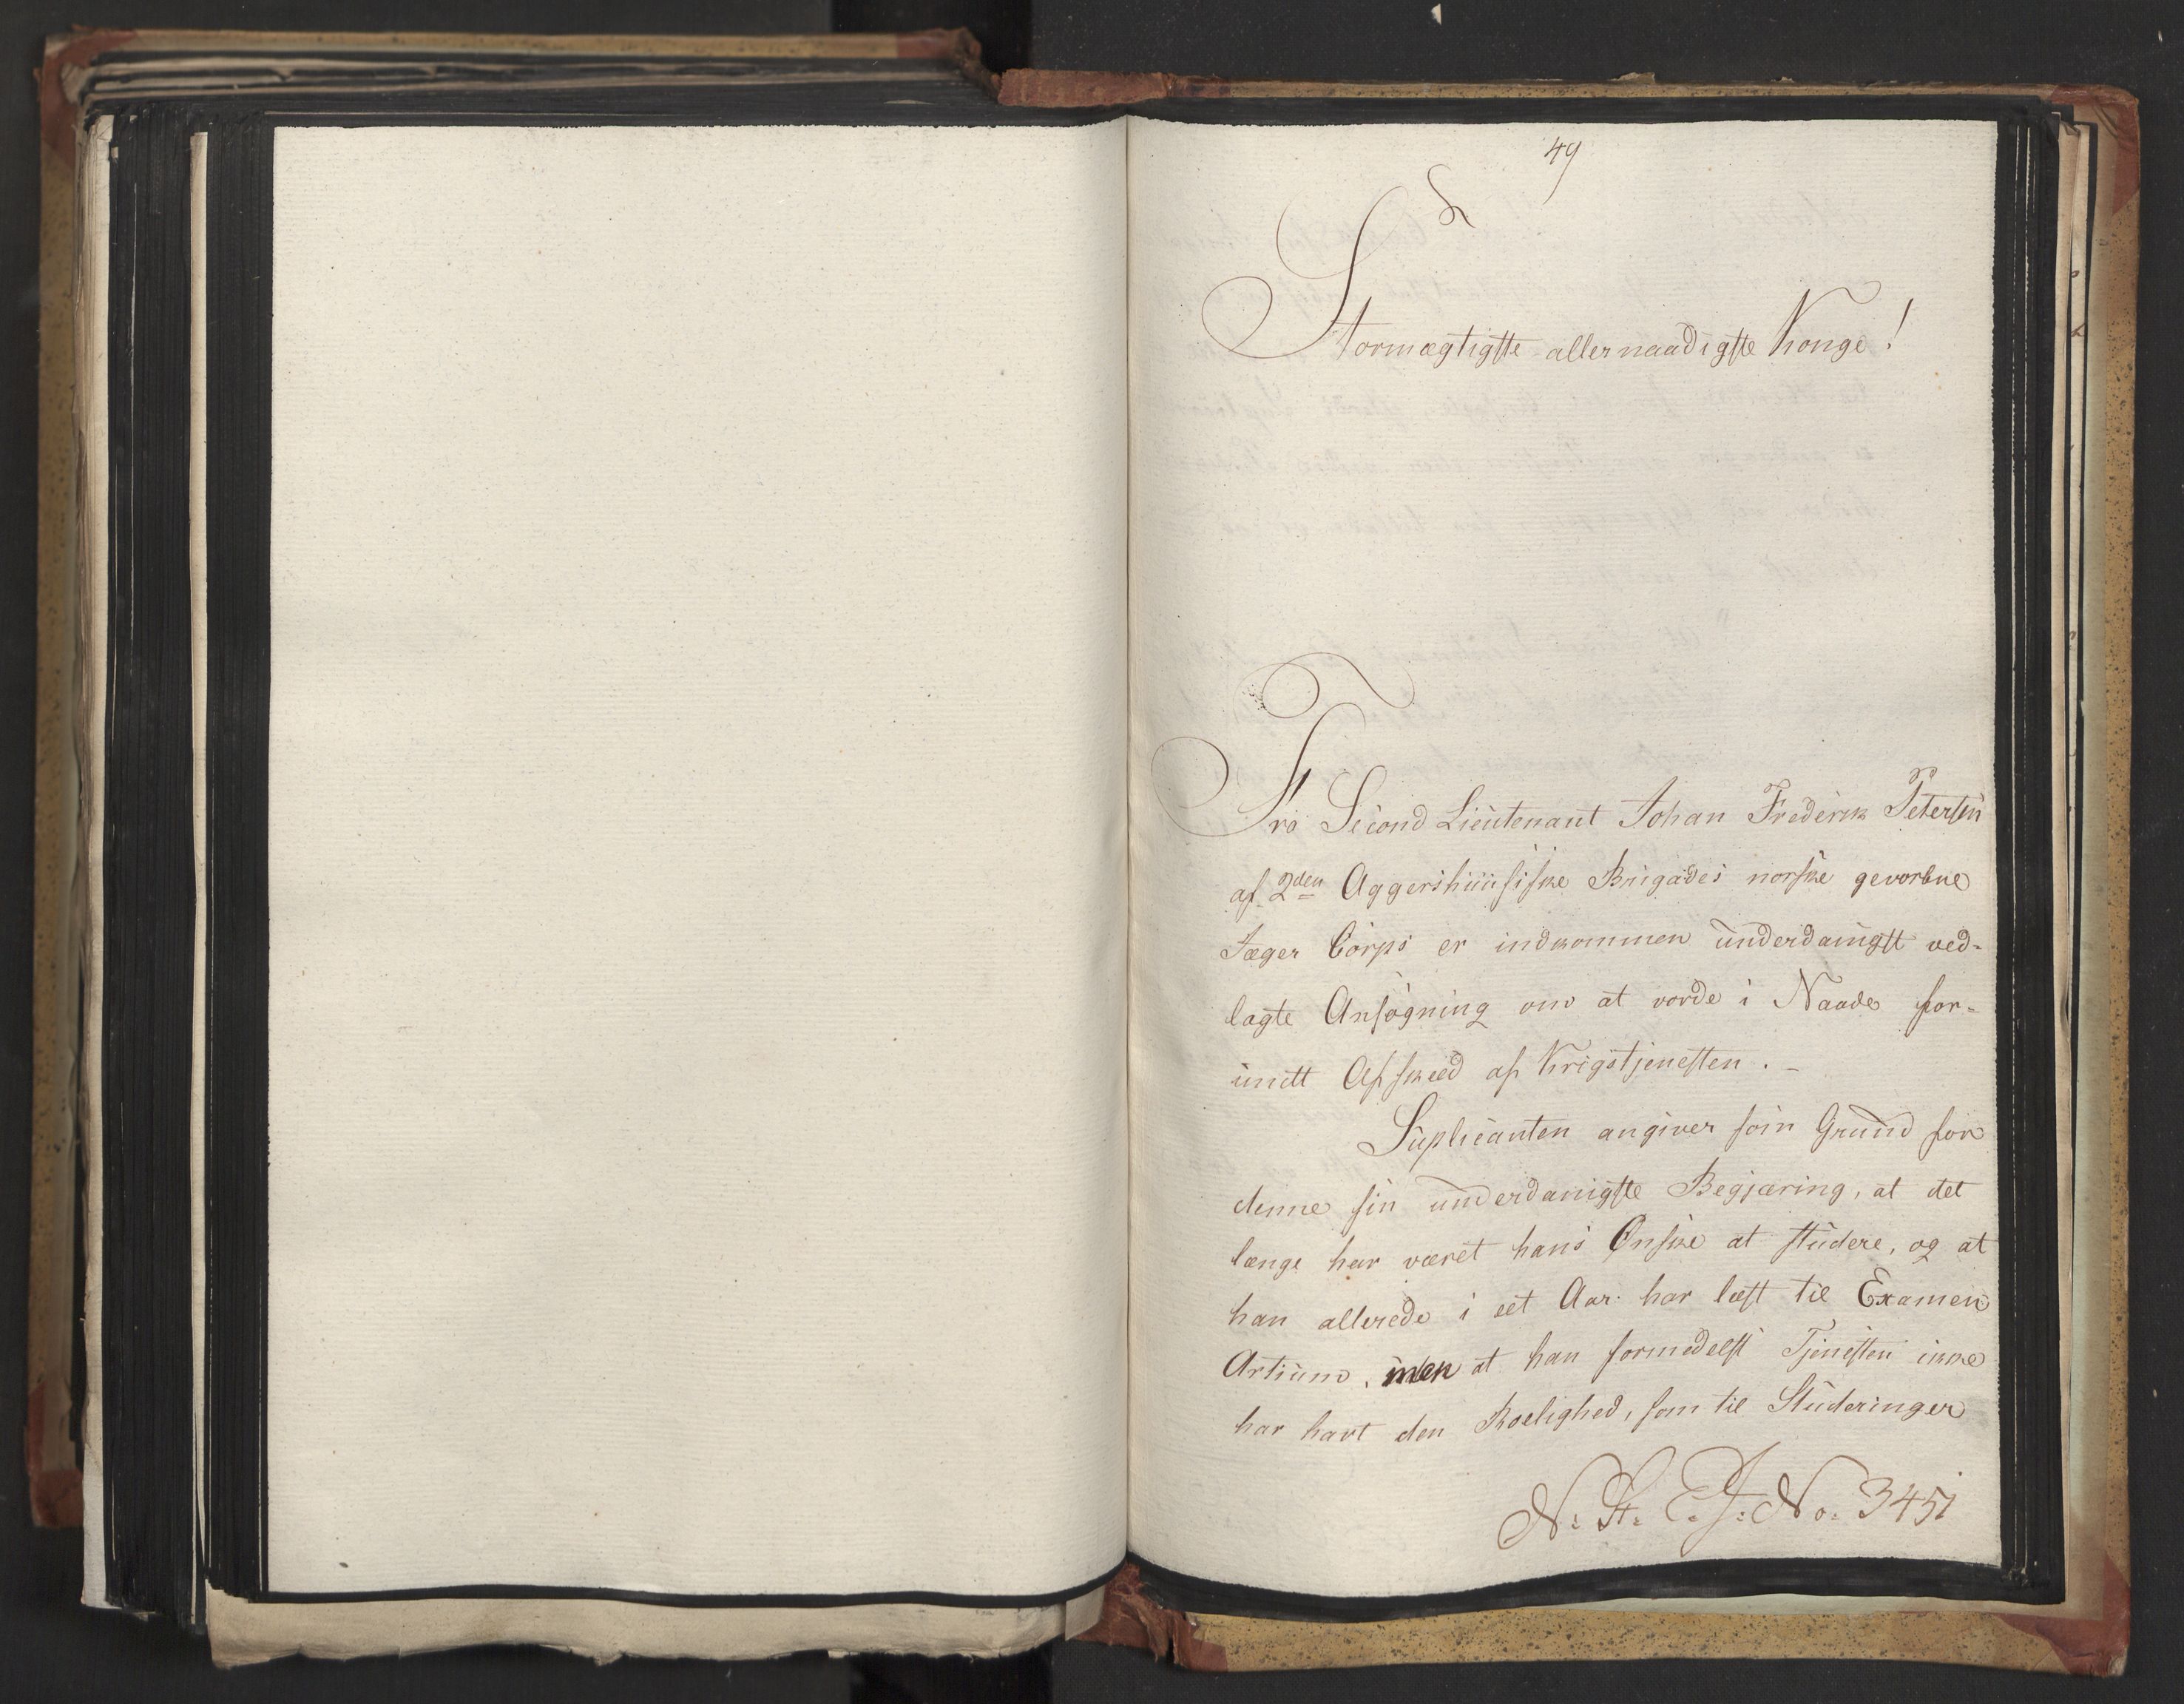 49
Stormægtigste allernaadigste Konge!
Fra Second Lieutenant Johan Frederik Petersen
af 2den Aggershuusiske Brigades norske gevorbne
Jæger Corps er indkommen underdanigst ved-
lagte Ansøgning om at vorde i Naade for-
undt Afskeed af Krigstjenesten. -
Suplicanten angiver som Grund for
denne sin underdanigste Begjæring, at det
længe har været hans Ønske at studere, og at
han allerede i eet Aar har læst til Examen
Artium, men at han formedelst Tjenesten ikke
har havt den Roelighed, som til Studeringer
N: St: E. J: No. 3451